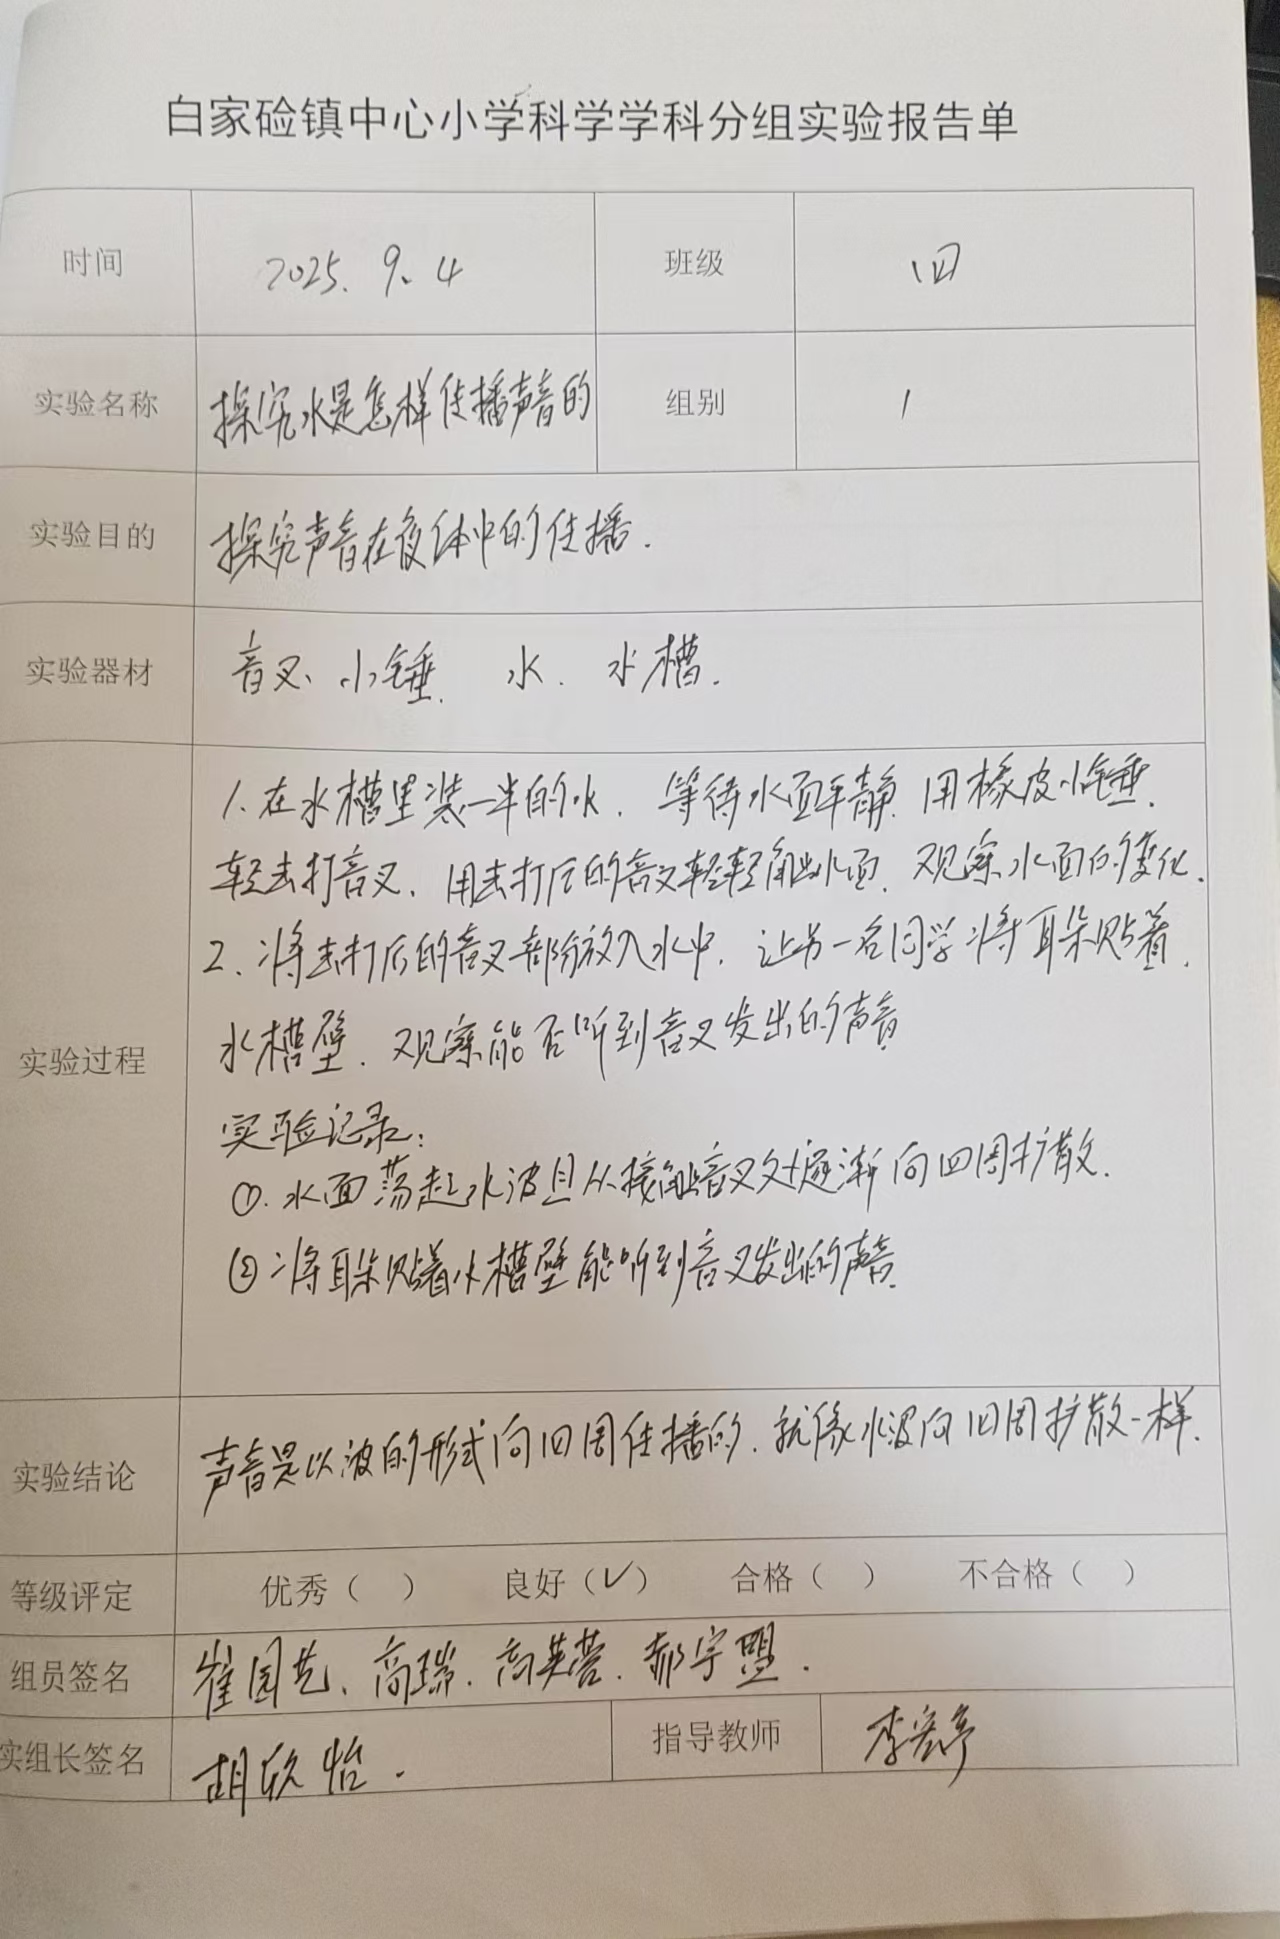 白家硷镇中心小学科学学科分组实验报告单
时间 2025. 9. 4 班级 四
实验名称 探究水是怎样传播声音的 组别 1
实验目的 探究声音在液体中的传播.
实验器材 音叉、小锤. 水. 水槽.
1. 在水槽里装一半的水. 等待水面平静. 用橡皮小锤.
轻击打音叉. 用击打后的音叉轻轻触水面. 观察水面的变化.
2. 将击打后的音叉部分放入水中. 让另一名同学将耳朵贴着.
实验过程 水槽壁. 观察能否听到音叉发出的声音
实验记录:
①. 水面荡起水波且从接触音叉处逐渐向四周扩散.
② 将耳朵贴着水槽壁能听到音叉发出的声音.
实验结论 声音是以波的形式向四周传播的. 就像水波向四周扩散一样.
等级评定 优秀（ ） 良好（✓） 合格（ ） 不合格（ ）
组员签名 崔园艺、高瑞. 高英蓉. 郝宇盟.
实组长签名 胡欣怡. 指导教师 李宏亭